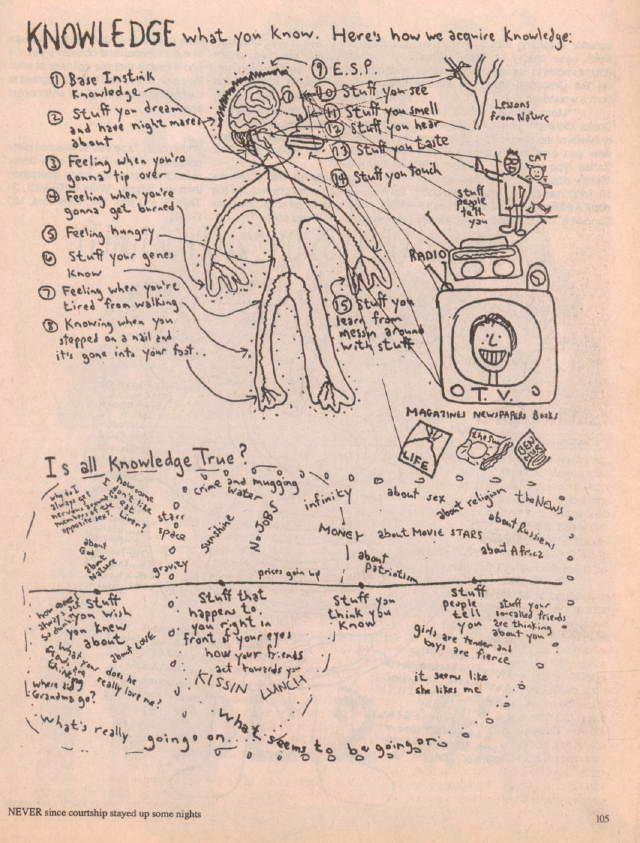 KNOWLEDGE what you know. Here's how we acquire knowledge:
① Base Instink
Knowledge
② Stuff you dream
and have nightmares
about
③ Feeling when you're
gonna tip over
④ Feeling when you're
gonna get burned
⑤ Feeling hungry
⑥ Stuff your genes
know
⑦ Feeling when you're
tired from walking
⑧ Knowing when you
stepped on a nail and
it's gone into your foot..
⑨ E.S.P.
10 Stuff you see
11 Stuff you smell
12 Stuff you hear
13 Stuff you taste
14 Stuff you touch
⑮ Stuff you
learn from
messin around
with stuff
Lessons
from Nature
CAT
stuff
people
tell
you
RADIO
T.V.
MAGAZINES NEWSPAPERS Books
LIFE
the Sun
Is all Knowledge True?
why do I
always get
nervous around
members of the
opposite sex?
how come
I don't like
to eat
Liver?
about
God
about
Nature
stars
space
gravity
crime and mugging
water
sunshine
No JOBS
prices goin up
infinity
MONEY
about
Patriotism
about sex
about religion
the NEWS
about Movie STARS
about Russians
about Africa
Stuff
you wish
you knew
about
about LOVE
does he
really love me?
where did
Grandma go?
Stuff that
happens to
you right in
front of your eyes
how your friends
act towards you
KISSIN
LUNCH
Stuff you
think you
know
Stuff
people
tell
you
stuff your
socalled friends
are thinking
about you
girls are tender and
boys are fierce
it seems like
she likes me
what's really going on...
what seems to be going on
NEVER since courtship stayed up some nights
105